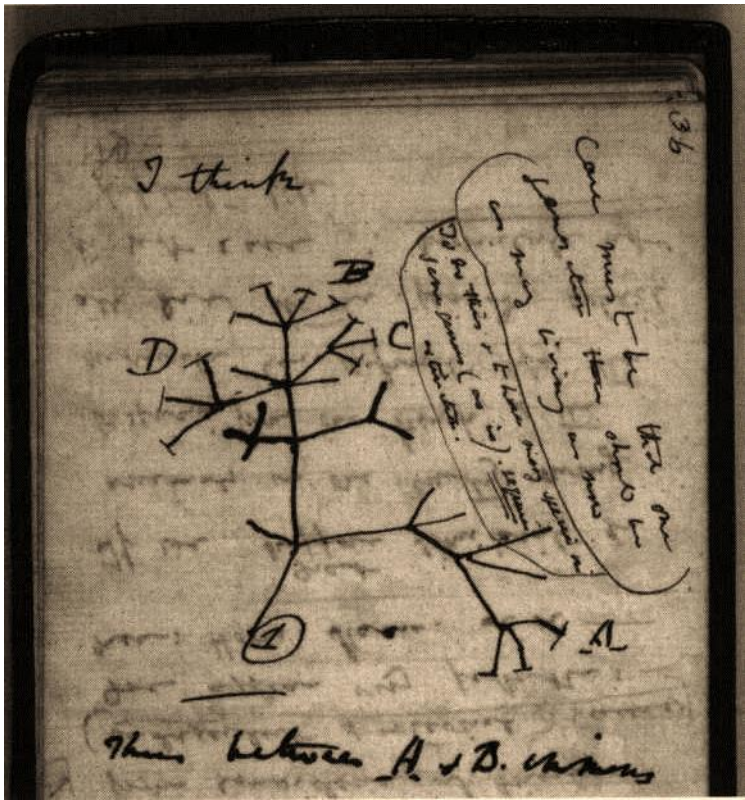 36
I think
Case must be that one
generation then should be
as many living as now
To do this & to have many species in
same genus (as is). requires
extinction.
B
C
D
A
1
Thus between A & B. immense